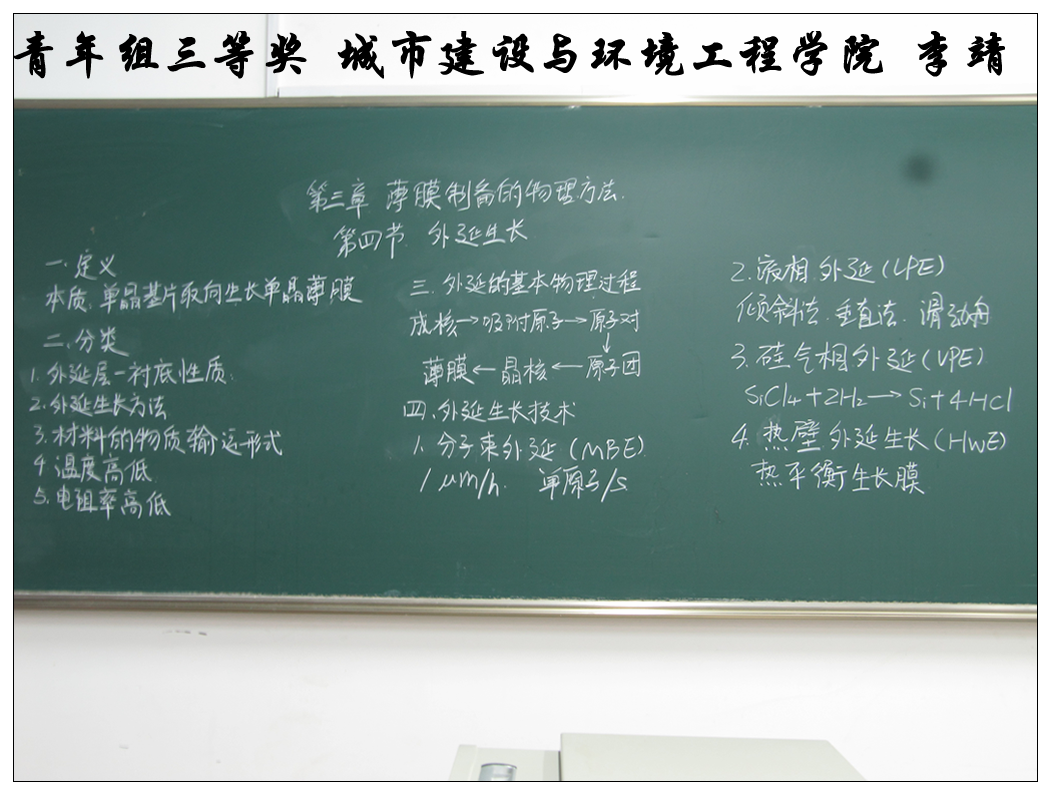 青年组三等奖 城市建设与环境工程学院 李靖
第三章 薄膜制备的物理方法.
第四节 外延生长
一.定义
本质.单晶基片取向生长单晶薄膜
二.分类
1.外延层-衬底性质.
2.外延生长方法
3.材料的物质输运形式
4 温度高低.
5.电阻率高低
三.外延的基本物理过程
成核→吸附原子→原子对
↓
薄膜←晶核←原子团
四.外延生长技术
1.分子束外延(MBE)
1μm/h. 单原子/s.
2.液相外延(LPE)
倾斜法.垂直法.滑动舟
3.硅气相外延(VPE)
SiCl4+2H2→Si+4HCl
4.热壁外延生长(HWE)
热平衡生长膜